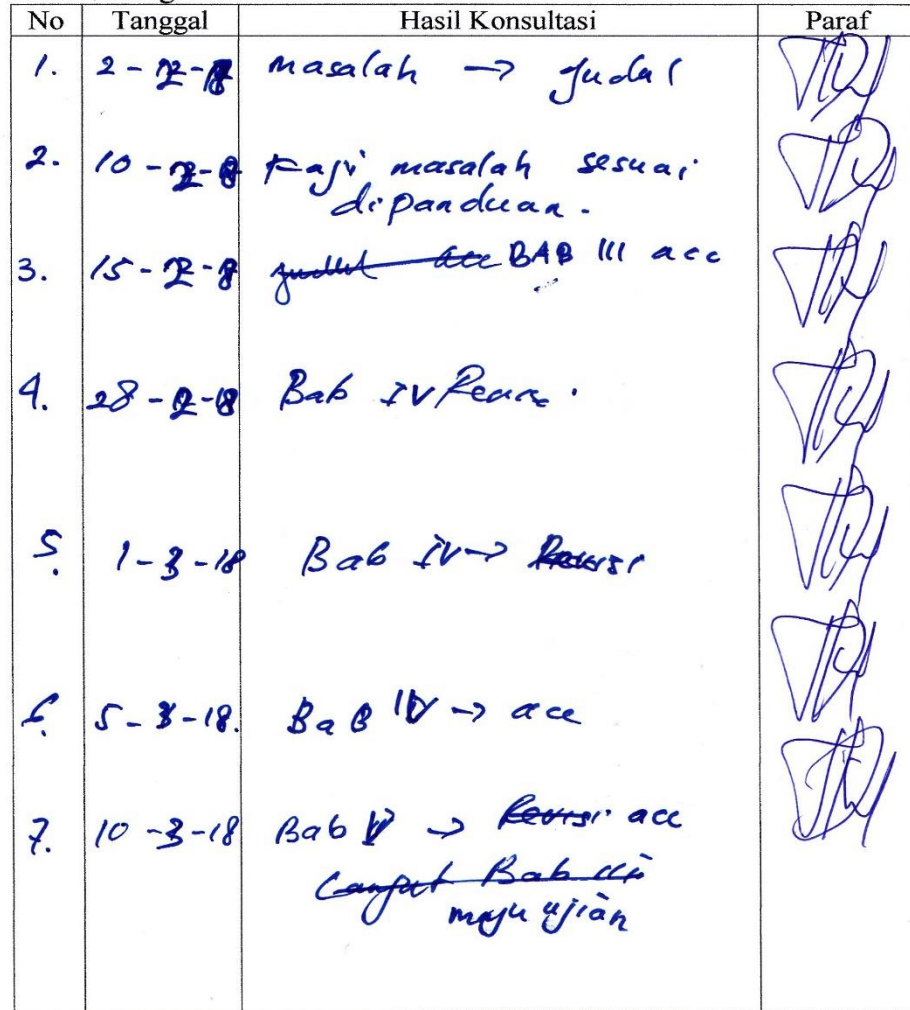 No Tanggal Hasil Konsultasi Paraf
1. 2 - 2 - masalah → Judul
2. 10 - 2 - 8 Kaji masalah sesuai
dipanduan.
3. 15 - 2 - 8 judul acc BAB III acc
4. 28 - 2 - 18 Bab IV
5. 1 - 3 - 18 Bab IV → Revisi
6. 5 - 3 - 18. BaB IV → acc
7. 10 - 3 - 18 Bab V → Revisi acc
Lanjut Bab III
maju ujian